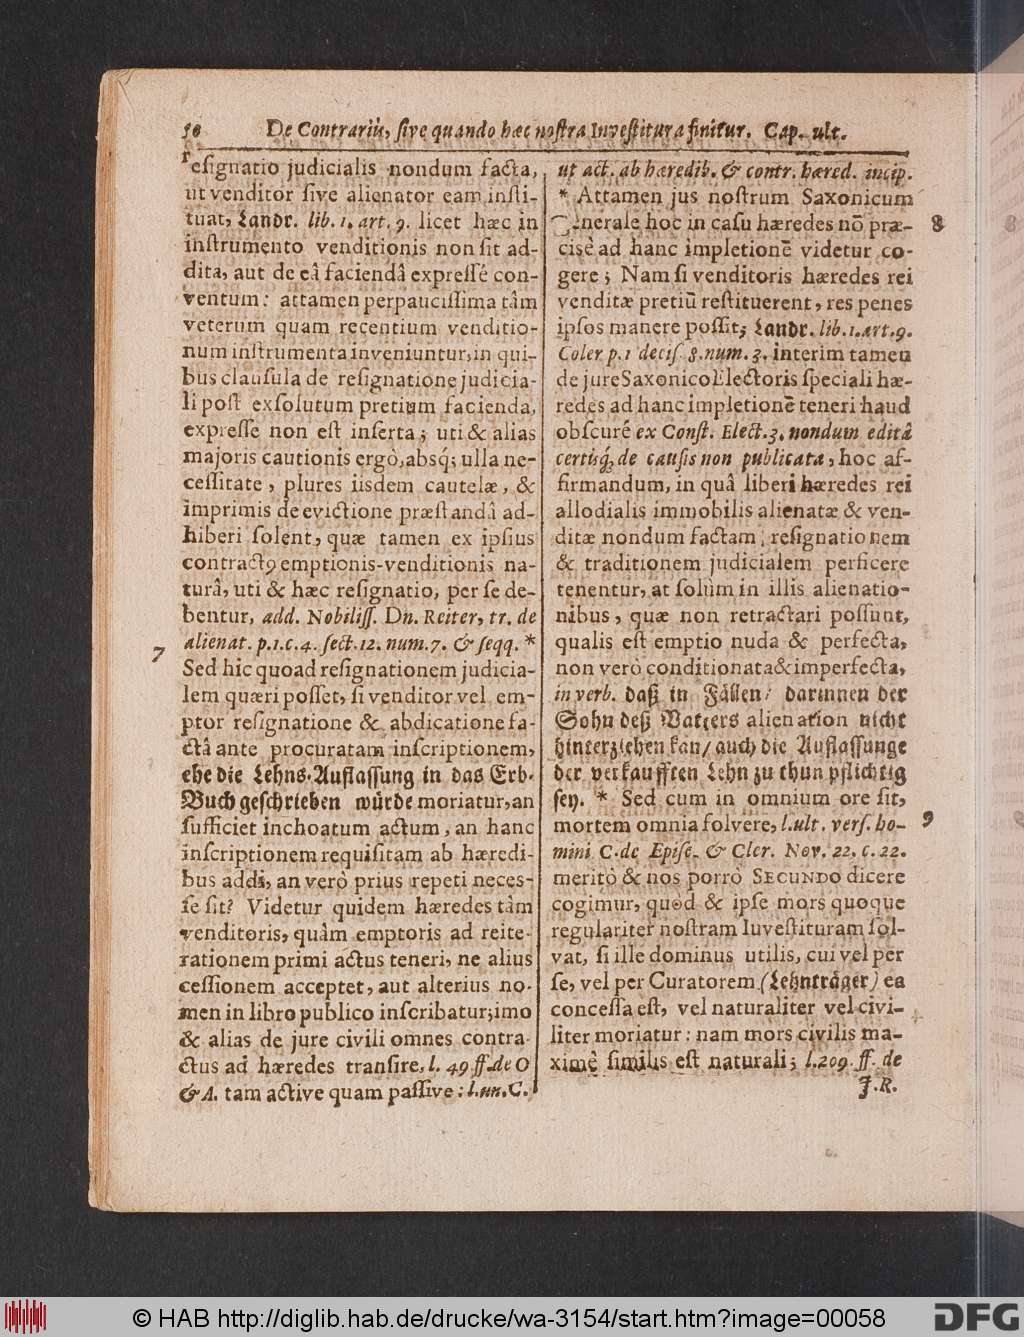 50 De Contrariis, sive quando hæc nostra Investitura finitur. Cap. ult.
resignatio judicialis nondum facta,
ut venditor sive alienator eam insti-
tuat, Landr. lib. 1. art. 9. licet hæc in
instrumento venditionis non sit ad-
dita, aut de eâ faciendâ expressé con-
ventum: attamen perpaucissima tâm
veterum quam recentium venditio-
num instrumenta inveniuntur, in qui-
bus clausula de resignatione judicia-
li post exsolutum pretium facienda,
expresse non est inserta; uti & alias
majoris cautionis ergò, absq; ulla ne-
cessitate, plures iisdem cautelæ, &
imprimis de evictione præstandâ ad-
hiberi solent, quæ tamen ex ipsius
contractꝰ emptionis-venditionis na-
turâ, uti & hæc resignatio, per se de-
bentur, add. Nobiliss. Dn. Reiter, tr. de
alienat. p. 1. c. 4. sect. 12. num. 7. & seqq. *
7 Sed hic quoad resignationem judicia-
lem quæri posset, si venditor vel em-
ptor resignatione & abdicatione fa-
ctâ ante procuratam inscriptionem,
ehe die Lehns-Auflassung in das Erb-
Buch geschrieben würde moriatur, an
sufficiet inchoatum actum, an hanc
inscriptionem requisitam ab hæredi-
bus addi, an verò prius repeti neces-
se sit? Videtur quidem hæredes tàm
venditoris, quàm emptoris ad reite-
rationem primi actus teneri, ne alius
cessionem acceptet, aut alterius no-
men in libro publico inscribatur; imo
& alias de jure civili omnes contra-
ctus ad hæredes transire, l. 49 ff. de O
& A. tam active quam passive: l. un. C.
ut act. ab hæredib. & contr. hæred. incip.
* Attamen jus nostrum Saxonicum
Generale hoc in casu hæredes nō præ- 8
cisè ad hanc impletionē videtur co-
gere; Nam si venditoris hæredes rei
venditæ pretiū restituerent, res penes
ipsos manere possit; Landr. lib. 1. art. 9.
Coler p. 1 decis. 8. num. 3. interim tamen
de jure Saxonico Electoris speciali hæ-
redes ad hanc impletionē teneri haud
obscuré ex Const. Elect. 3. nondum editâ
certisq; de causis non publicata, hoc af-
firmandum, in quâ liberi hæredes rei
allodialis immobilis alienatæ & ven-
ditæ nondum factam resignationem
& traditionem judicialem perficere
tenentur, at solùm in illis alienatio-
nibus, quæ non retractari possunt,
qualis est emptio nuda & perfecta,
non verò conditionata & imperfecta,
in verb. daß in Fällen / darinnen der
Sohn deß Vatters alienation nicht
hinterziehen kan / auch die Auflassunge
der verkaufften Lehn zu thun pflichtig
sey. * Sed cum in omnium ore sit,
mortem omnia solvere, l. ult. vers. ho- 9
mini C. de Episc. & Cler. Nov. 22. c. 22.
meritò & nos porrò SECUNDO dicere
cogimur, quod & ipse mors quoque
regulariter nostram Iuvestituram sol-
vat, si ille dominus utilis, cui vel per
se, vel per Curatorem (Lehnträger) ea
concessa est, vel naturaliter vel civi-
liter moriatur: nam mors civilis ma-
ximè similis est naturali; l. 209. ff. de
J. R.
© HAB http://diglib.hab.de/drucke/wa-3154/start.htm?image=00058
DFG